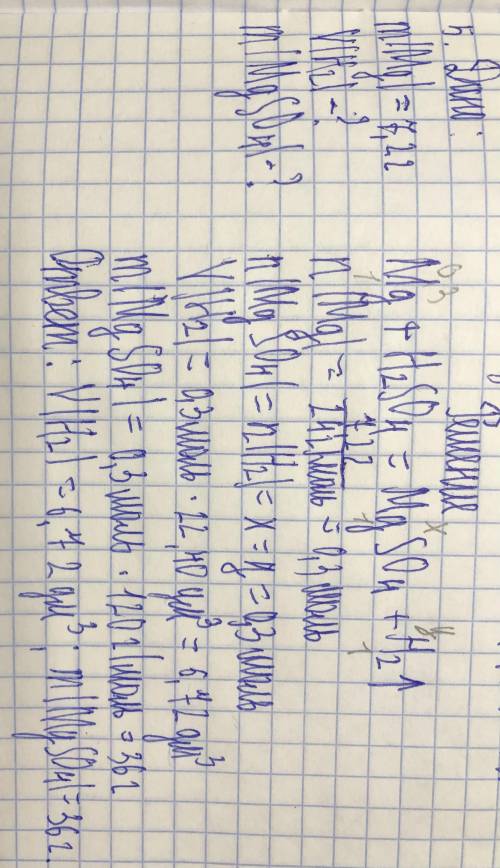 5. Дано:
m(Mg) = 7,2г
V(H2) - ?
m(MgSO4) - ?
Решение
0,3 x y
Mg + H2SO4 = MgSO4 + H2↑
1 1 1
n(Mg) = 7,2г / 24г/моль = 0,3 моль
n(MgSO4) = n(H2) = x = y = 0,3 моль
V(H2) = 0,3 моль · 22,40 дм³ = 6,72 дм³
m(MgSO4) = 0,3 моль · 120г/моль = 36г
Ответ: V(H2) = 6,72 дм³; m(MgSO4) = 36г.